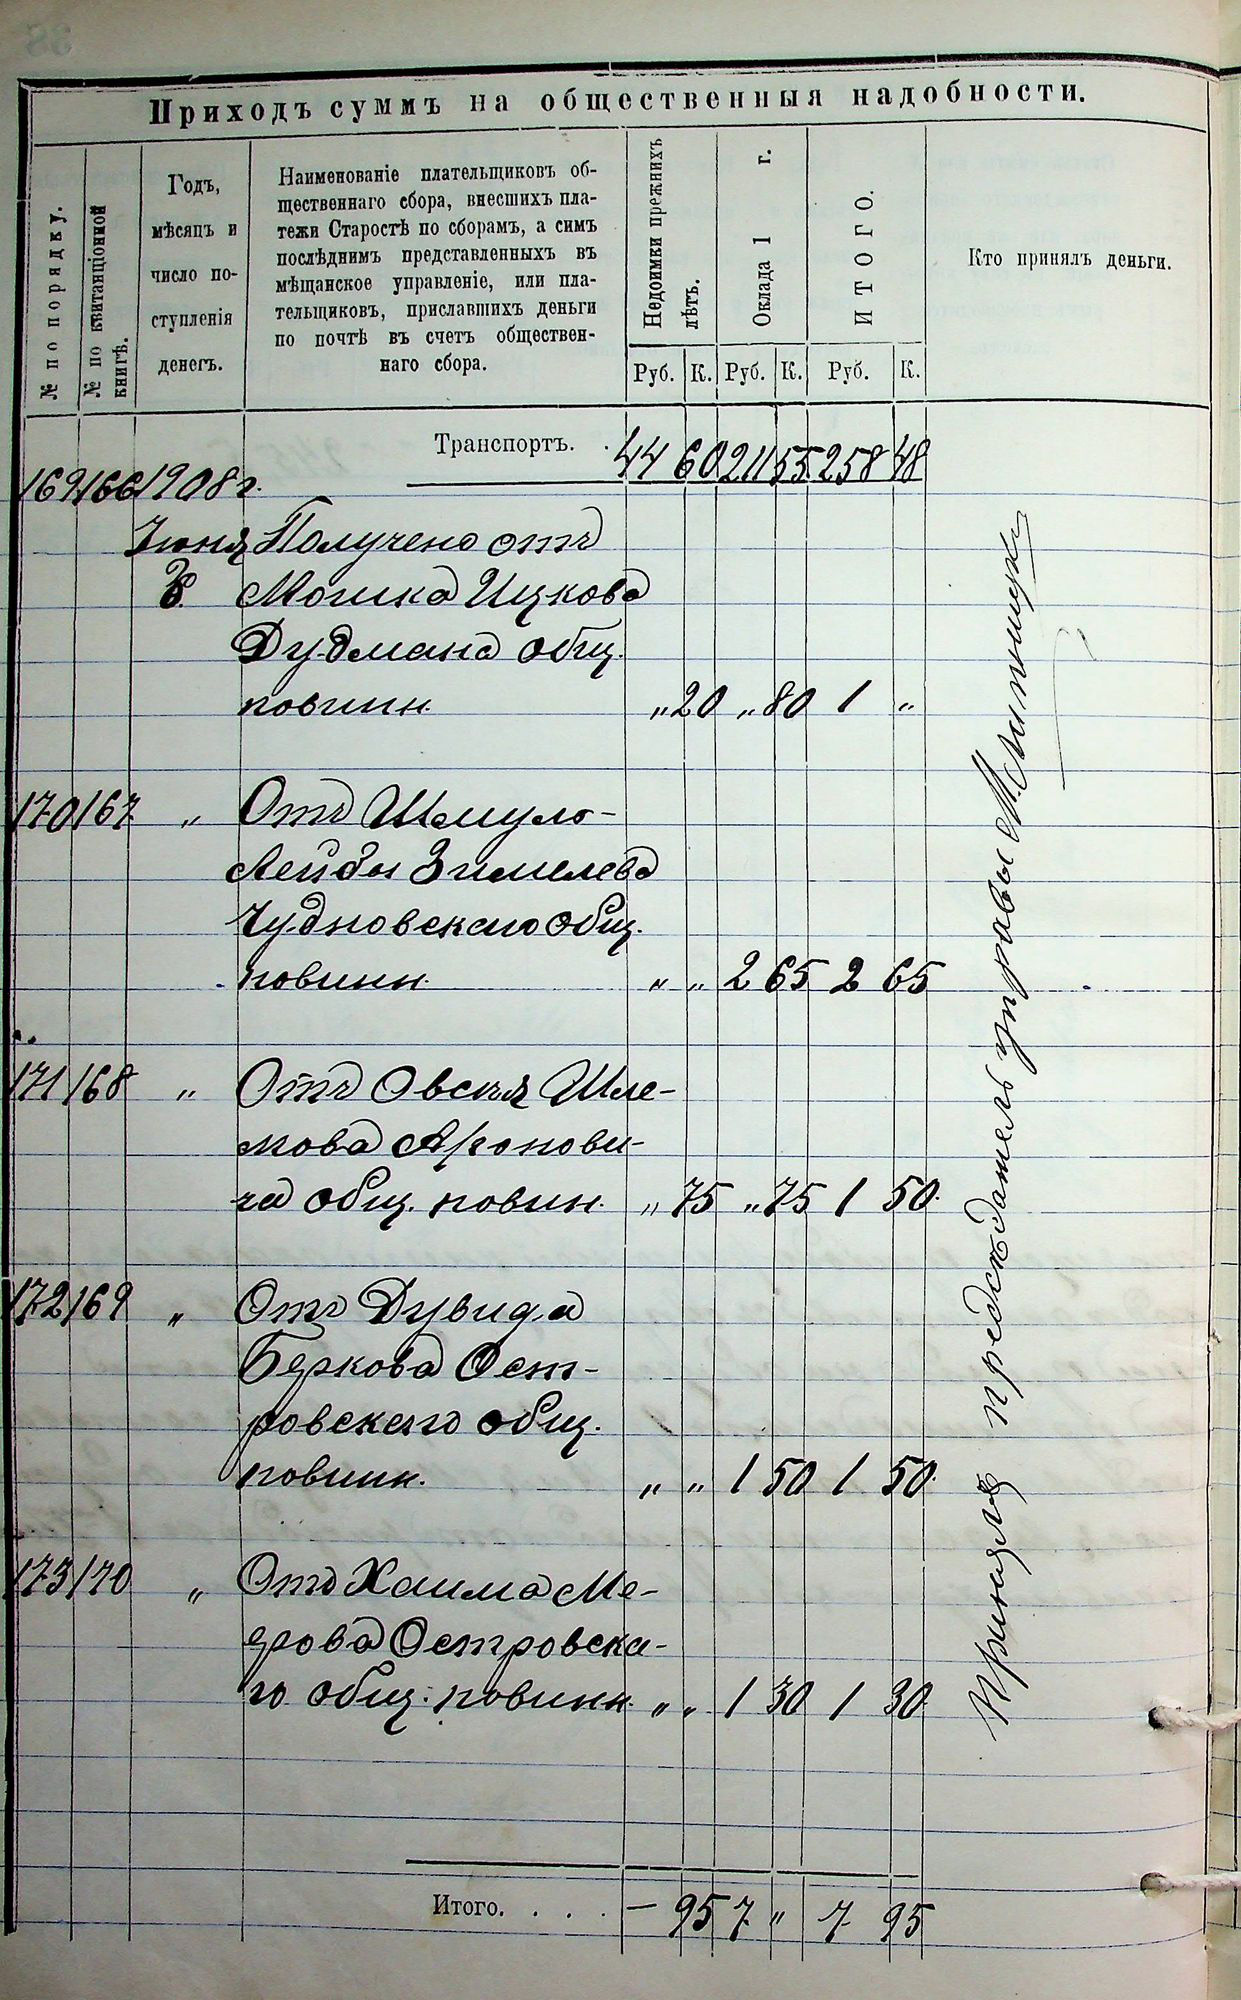 Приходъ суммъ на общественныя надобности.
№ по порядку.
№ по квитанціонной
книгѣ.
Годъ,
мѣсяцъ и
число по-
ступленія
денегъ.
Наименованіе плательщиковъ об-
щественнаго сбора, внесшихъ пла-
тежи Старостѣ по сборамъ, а симъ
послѣднимъ представленныхъ въ
мѣщанское управленіе, или пла-
тельщиковъ, приславшихъ деньги
по почтѣ въ счетъ обществен-
наго сбора.
Недоимки прежнихъ
лѣтъ.
Оклада 1 г.
ИТОГО.
Кто принялъ деньги.
Руб. К. Руб. К. Руб. К.
Транспортъ. . 44 60 211 55 258 48
169 166 1908 г.
Іюня Получено отъ
Мошка Ицкова
Дудмана общ.
повинн. „ 20 „ 80 1 „
170 167 „ Отъ Шмуло-
Лейбы Зимелева
Чудновскаго общ.
повинн. „ „ 2 65 2 65
171 168 „ Отъ Овсѣя Шле-
мова Аронови-
ча общ. повин. „ 75 „ 75 1 50
172 169 „ Отъ Дувида
Беркова Ост-
ровскаго общ.
повинн. „ „ 1 50 1 50
173 170 „ Отъ Хаима Ме-
ерова Островска-
го общ. повинн. „ „ 1 30 1 30
Принялъ предсѣдатель управы
Итого. . . . — 95 7 „ 7 95